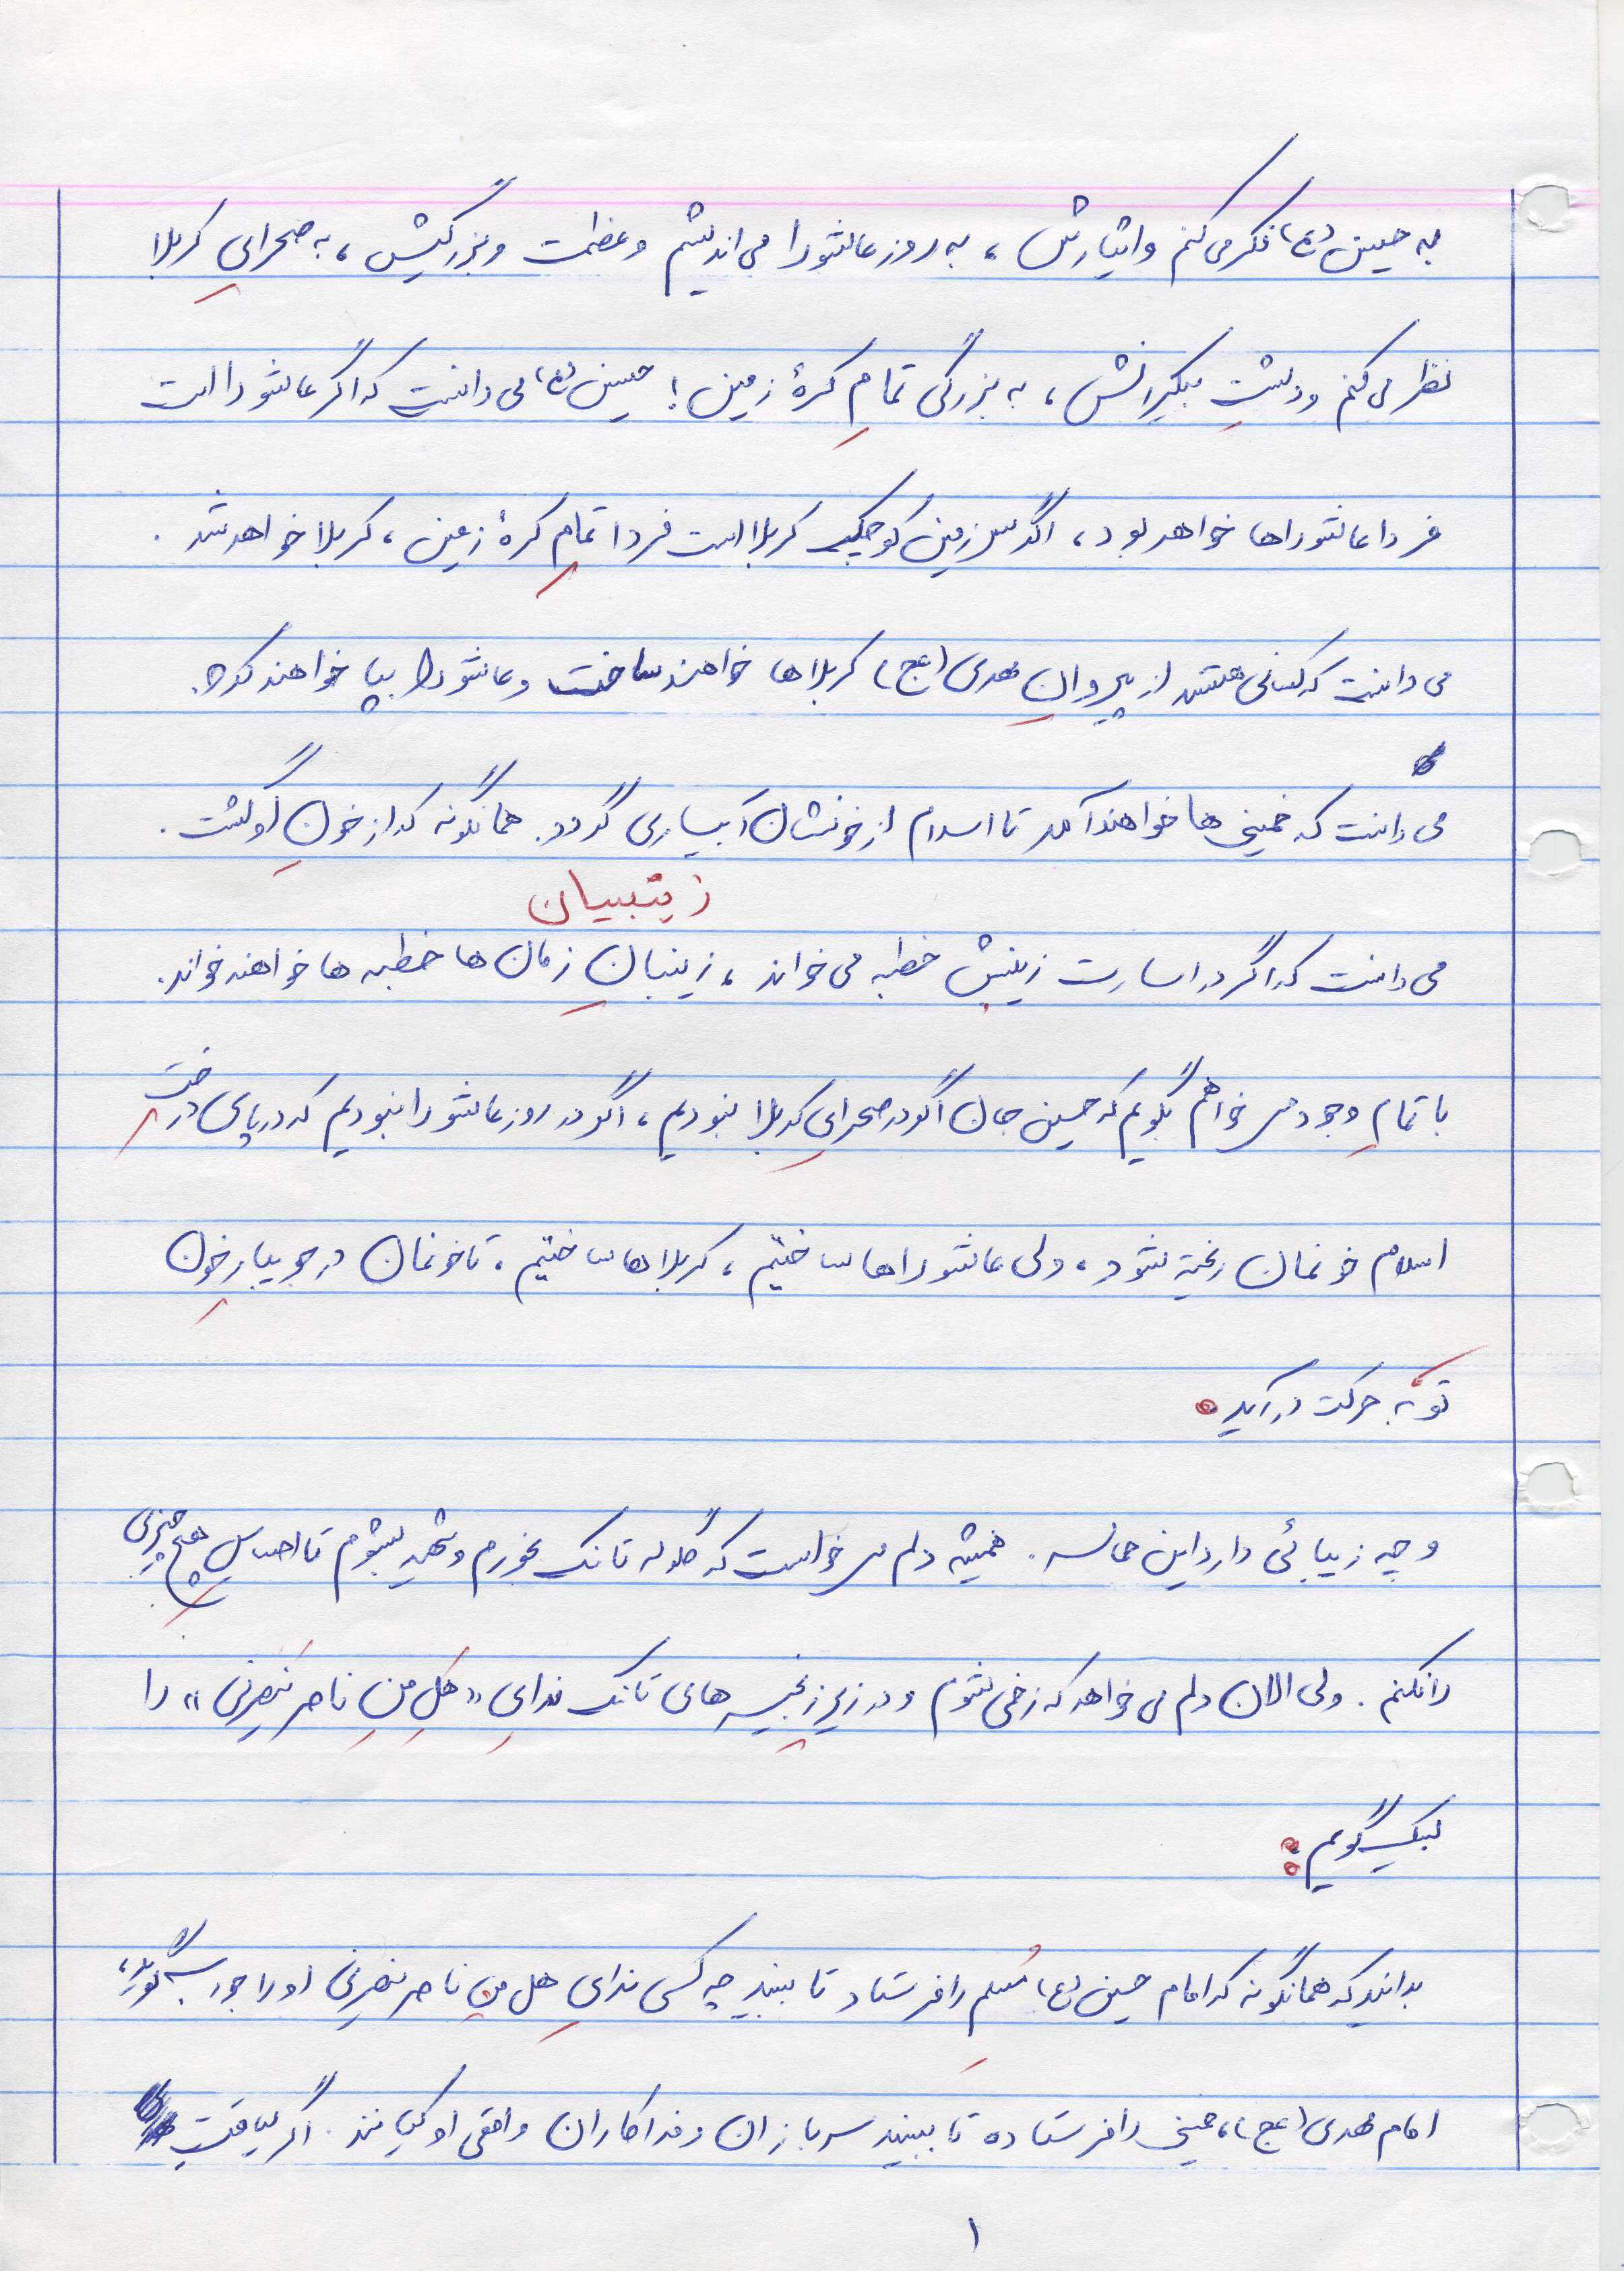 به حسین (ع) فکر می کنم و ایثارش ، به روز عاشورا می اندیشم و عظمت و بزرگیش ، به صحرایِ کربلا
نظر می کنم و دشتِ بیکرانش ، به بزرگی تمامِ کرهٔ زمین ! حسین (ع) می دانست که اگر عاشورا است
فردا عاشوراها خواهد بود ، اگر سرزمین کوچک کربلا است فردا تمامِ کرهٔ زمین ، کربلا خواهد شد .
می دانست که کسانی هستند از پیروانِ مهدی (عج) کربلاها خواهند ساخت و عاشورا بپا خواهند کرد .
می دانست که خمینی ها خواهند آمد تا اسلام از خونشان آبیاری گردد . همانگونه که از خونِ او گشت .
زینبیان
می دانست که اگر در اسارت زینبش خطبه می خواند ، زینبانِ زمان ها خطبه ها خواهند خواند .
با تمامِ وجود می خواهم بگویم که حسین جان اگر در صحرایِ کربلا نبودیم ، اگر در روز عاشورا نبودیم که در پای درختِ
اسلام خونمان ریخته شود ، ولی عاشوراها ساختیم ، کربلاها ساختیم ، تا خونمان در جویبارِ خونِ
تو به حرکت در آید .
و چه زیبائی دارد این حماسه . همیشه دلم می خواست که گلوله تانک بخورم و شهید بشوم تا احساسِ هیچ چیزی
را نکنم . ولی الان دلم می خواهد که زخمی شوم و در زیرِ زنجیرهای تانک ندایِ « هَل مِن ناصر یَنصرنی » را
لبیک گویم :
بدانید که همانگونه که امام حسین (ع) مُسلم را فرستاد تا ببیند چه کسی ندایِ هل من ناصر ینصرنی او را جواب گوید ،
امام مهدی (عج) ، خمینی را فرستاده تا ببیند سربازان و فداکاران واقعی او کیانند . اگر لیاقتِ
۱